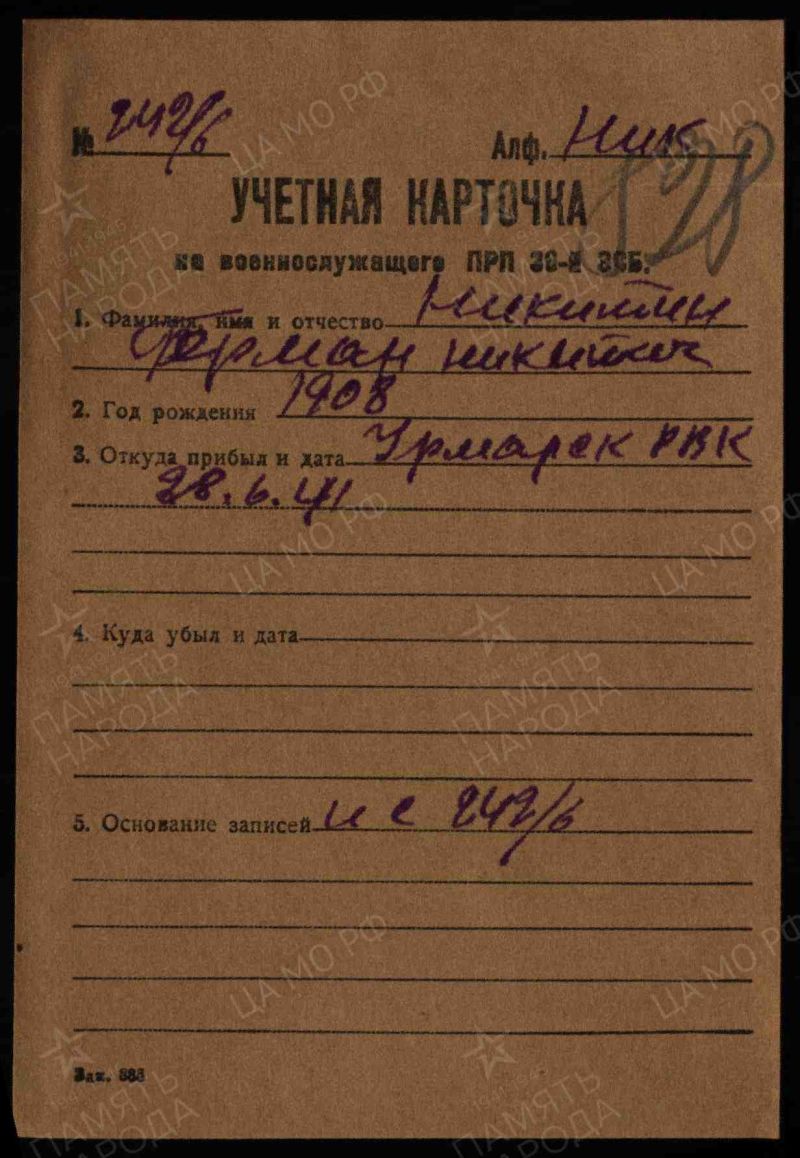 № 242/6 Алф. Ник
528
УЧЕТНАЯ КАРТОЧКА
на военнослужащего ПРП 39-й ЗСБ.
1. Фамилия, имя и отчество Никитин
Герман Никитич
2. Год рождения 1908
3. Откуда прибыл и дата Урмарск РВК
28.6.41
4. Куда убыл и дата
5. Основание записей и с 242/6
Зак. 888
ЦА МО РФ
ПАМЯТЬ
НАРОДА
1941-1945